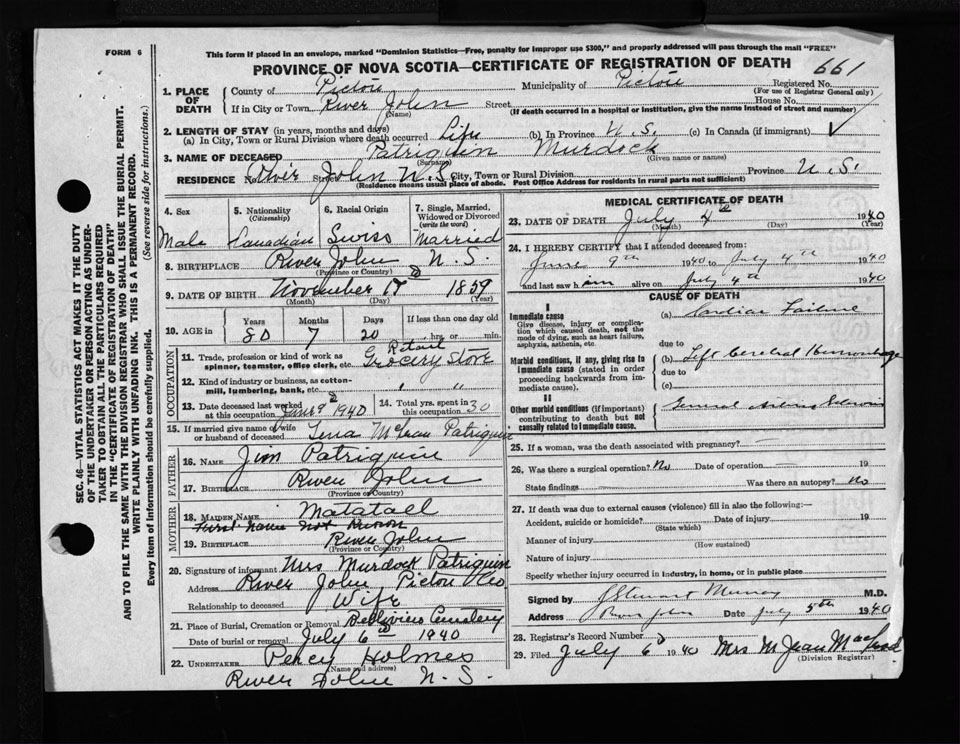 FORM 6
This form if placed in an envelope, marked "Dominion Statistics—Free, penalty for improper use $300," and properly addressed will pass through the mail "FREE"
PROVINCE OF NOVA SCOTIA—CERTIFICATE OF REGISTRATION OF DEATH 661
SEC. 46—VITAL STATISTICS ACT MAKES IT THE DUTY
OF THE UNDERTAKER OR PERSON ACTING AS UNDER-
TAKER TO OBTAIN ALL THE PARTICULARS REQUIRED
IN THE "CERTIFICATE OF REGISTRATION OF DEATH"
AND TO FILE THE SAME WITH THE DIVISION REGISTRAR WHO SHALL ISSUE THE BURIAL PERMIT.
WRITE PLAINLY WITH UNFADING INK. THIS IS A PERMANENT RECORD.
Every item of information should be carefully supplied. (See reverse side for instructions.)
1. PLACE OF DEATH County of Pictou Municipality of Pictou Registered No.
(For use of Registrar General only)
If in City or Town River John Street House No.
(Name) (If death occurred in a hospital or institution, give the name instead of street and number)
2. LENGTH OF STAY (in years, months and days)
(a) In City, Town or Rural Division where death occurred Life (b) In Province N.S. (c) In Canada (if immigrant) ✓
3. NAME OF DECEASED Patriquin Murdock
(Surname) (Given name or names)
RESIDENCE No. River Street John N.S. City, Town or Rural Division Province N.S.
(Residence means usual place of abode. Post Office Address for residents in rural parts not sufficient)
4. Sex Male
5. Nationality (Citizenship) Canadian
6. Racial Origin Swiss
7. Single, Married, Widowed or Divorced (write the word) Married
8. BIRTHPLACE River John N.S.
(Province or Country)
9. DATE OF BIRTH November 1859
(Month) (Day) (Year)
10. AGE in Years Months Days If less than one day old
80 7 20 hrs. or min.
OCCUPATION
11. Trade, profession or kind of work as spinner, teamster, office clerk, etc. Retail Grocery Store
12. Kind of industry or business, as cotton-mill, lumbering, bank, etc. " "
13. Date deceased last worked at this occupation 1940 14. Total yrs. spent in this occupation 30
15. If married give name of wife or husband of deceased Lena McLean Patriquin
FATHER
16. NAME Jim Patriquin
17. BIRTHPLACE River John
(Province or Country)
MOTHER
18. MAIDEN NAME Matatall
First Name Not Known
19. BIRTHPLACE River John
(Province or Country)
20. Signature of informant Mrs Murdock Patriquin
Address River John Pictou Co
Relationship to deceased Wife
21. Place of Burial, Cremation or Removal Bellview Cemetery
Date of burial or removal July 6th 1940
22. UNDERTAKER Percy Holmes
(Name and address)
River John N.S.
MEDICAL CERTIFICATE OF DEATH
23. DATE OF DEATH July 4th 1940
(Month) (Day) (Year)
24. I HEREBY CERTIFY that I attended deceased from:
June 9th 1940 to July 4th 1940
and last saw him alive on July 4th 1940
CAUSE OF DEATH
I
Immediate cause (a) Cardiac Failure
Give disease, injury or complication which caused death, not the mode of dying, such as heart failure, asphyxia, asthenia, etc.
due to
Morbid conditions, if any, giving rise to immediate cause (stated in order proceeding backwards from immediate cause). (b) Left Cerebral Hemorrhage
due to
(c)
II
Other morbid conditions (if important) contributing to death but not causally related to immediate cause. General
25. If a woman, was the death associated with pregnancy?
26. Was there a surgical operation? No Date of operation 19
State findings Was there an autopsy? No
27. If death was due to external causes (violence) fill in also the following:—
Accident, suicide or homicide? Date of injury 19
(State which)
Manner of injury
(How sustained)
Nature of injury
Specify whether injury occurred in industry, in home, or in public place
Signed by Stewart Murray M.D.
Address River John Date July 5th 1940
28. Registrar's Record Number
29. Filed July 6 1940 Mrs M Jean MacLeod
(Division Registrar)